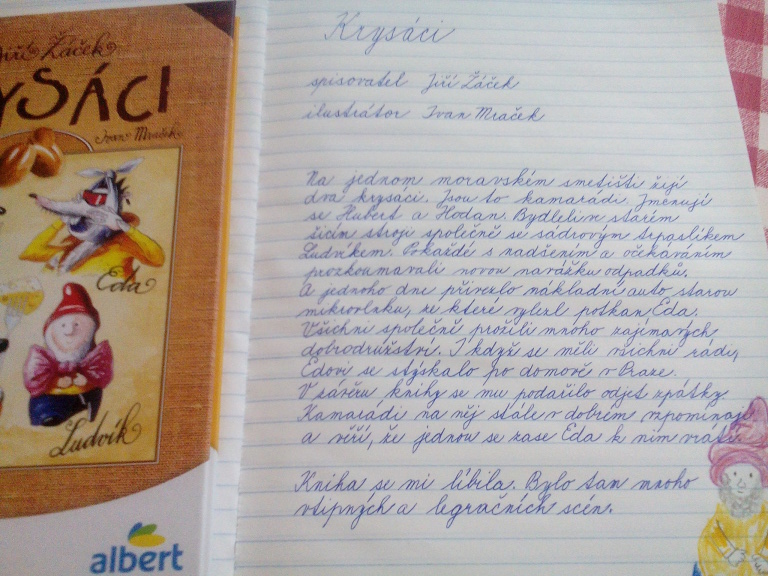 Jiří Žáček
YSÁCI
Ivan Mraček
Eda
Ludvík
albert
Krysáci
spisovatel Jiří Žáček
ilustrátor Ivan Mraček
Na jednom moravském smetišti žijí
dva krysáci. Jsou to kamarádi. Jmenují
se Hubert a Hodan. Bydleli ve starém
šicím stroji společně se sádrovým trpaslíkem
Ludvíkem. Pokaždé s nadšením a očekáváním
prozkoumavali novou navážku odpadků.
A jednoho dne přivezlo nákladní auto starou
mikrovlnku, ze které vylezl potkan Eda.
Všichni společně prožili mnoho zajímavých
dobrodružství. I když se měli všichni rádi,
Edovi se stýskalo po domově v Praze.
V závěru knihy se mu podařilo odjet zpátky.
Kamarádi na něj stále v dobrém vzpomínají
a věří, že jednou se zase Eda k nim vrátí.
Kniha se mi líbila. Bylo tam mnoho
vtipných a legračních scén.